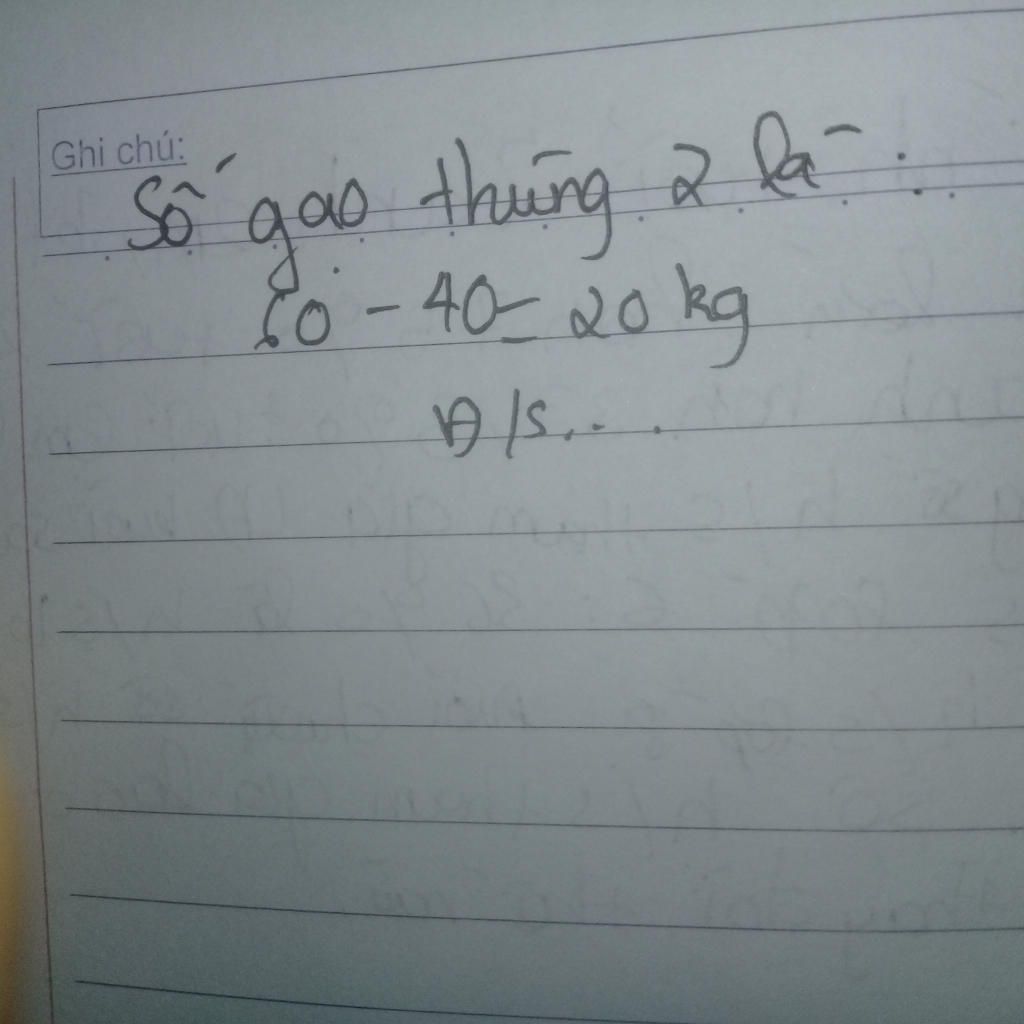 Ghi chú:
Số gạo thùng 2 là:
60 - 40 = 20 kg
Đ/S...